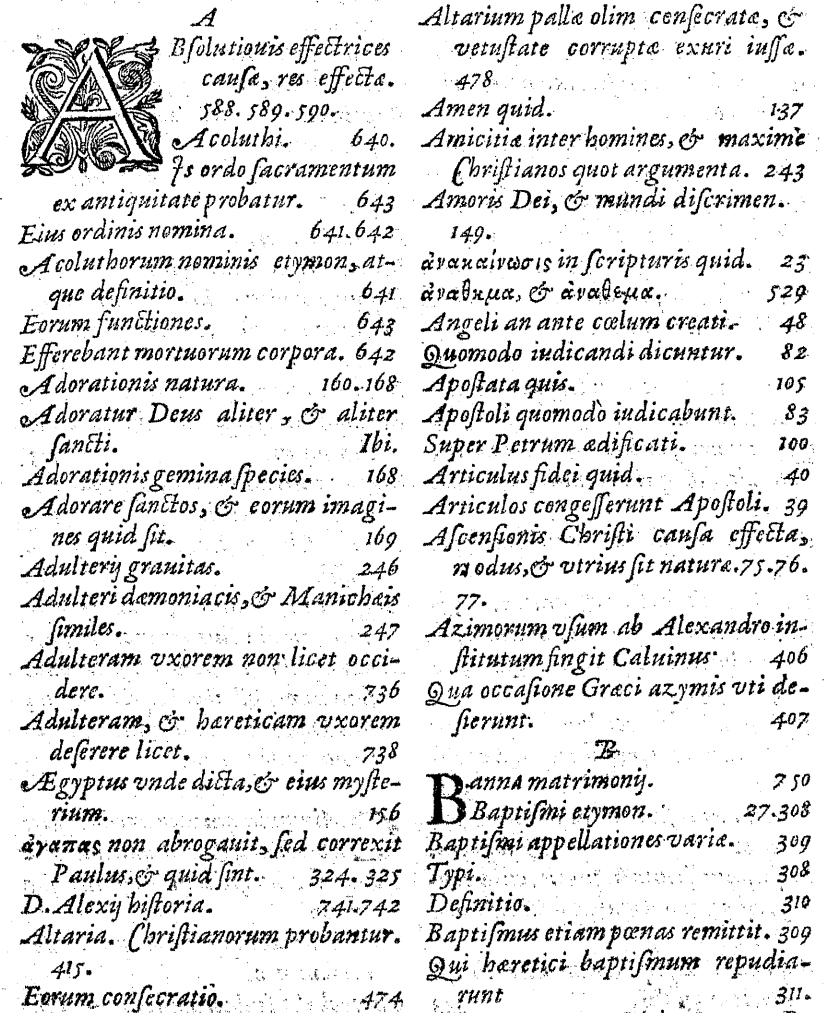 A
ABsolutionis effectrices
causæ, res effectæ.
588. 589. 590.
Acoluthi. 640.
Is ordo sacramentum
ex antiquitate probatur. 643
Eius ordinis nomina. 641.642
Acoluthorum nominis etymon, at-
que definitio. 641
Eorum functiones. 643
Efferebant mortuorum corpora. 642
Adorationis natura. 160.168
Adoratur Deus aliter, & aliter
sancti. Ibi.
Adorationis gemina species. 168
Adorare sanctos, & eorum imagi-
nes quid sit. 169
Adulterij grauitas. 246
Adulteri dæmoniacis, & Manichæis
similes. 247
Adulteram vxorem non licet occi-
dere. 736
Adulteram, & hæreticam vxorem
deserere licet. 738
Ægyptus vnde dicta, & eius myste-
rium. 156
ἀγαπας non abrogauit, sed correxit
Paulus, & quid sint. 324. 325
D. Alexij historia. 741.742
Altaria. Christianorum probantur.
415.
Eorum consecratio. 474
Altarium pallæ olim censecratæ, &
vetustate corruptæ exuri iussæ.
478
Amen quid. 137
Amicitiæ inter homines, & maximè
Christianos quot argumenta. 243
Amoris Dei, & mundi discrimen.
149.
ἀνακαίνωσις in scripturis quid. 23
ἀναθημα, & ἀναθεμα. 529
Angeli an ante cœlum creati. 48
Quomodo iudicandi dicuntur. 82
Apostata quis. 105
Apostoli quomodò iudicabunt. 83
Super Petrum ædificati. 100
Articulus fidei quid. 40
Articulos congesserunt Apostoli. 39
Ascensionis Christi causa effecta,
modus, & vtrius sit naturæ. 75.76.
77.
Azimorum vsum ab Alexandro in-
stitutum fingit Caluinus 406
Qua occasione Græci azymis vti de-
sierunt. 407
B
BannA matrimonij. 750
Baptismi etymon. 27.308
Baptismi appellationes variæ. 309
Typi. 308
Definitio. 310
Baptismus etiam pœnas remittit. 309
Qui hæretici baptismum repudia-
runt 311.